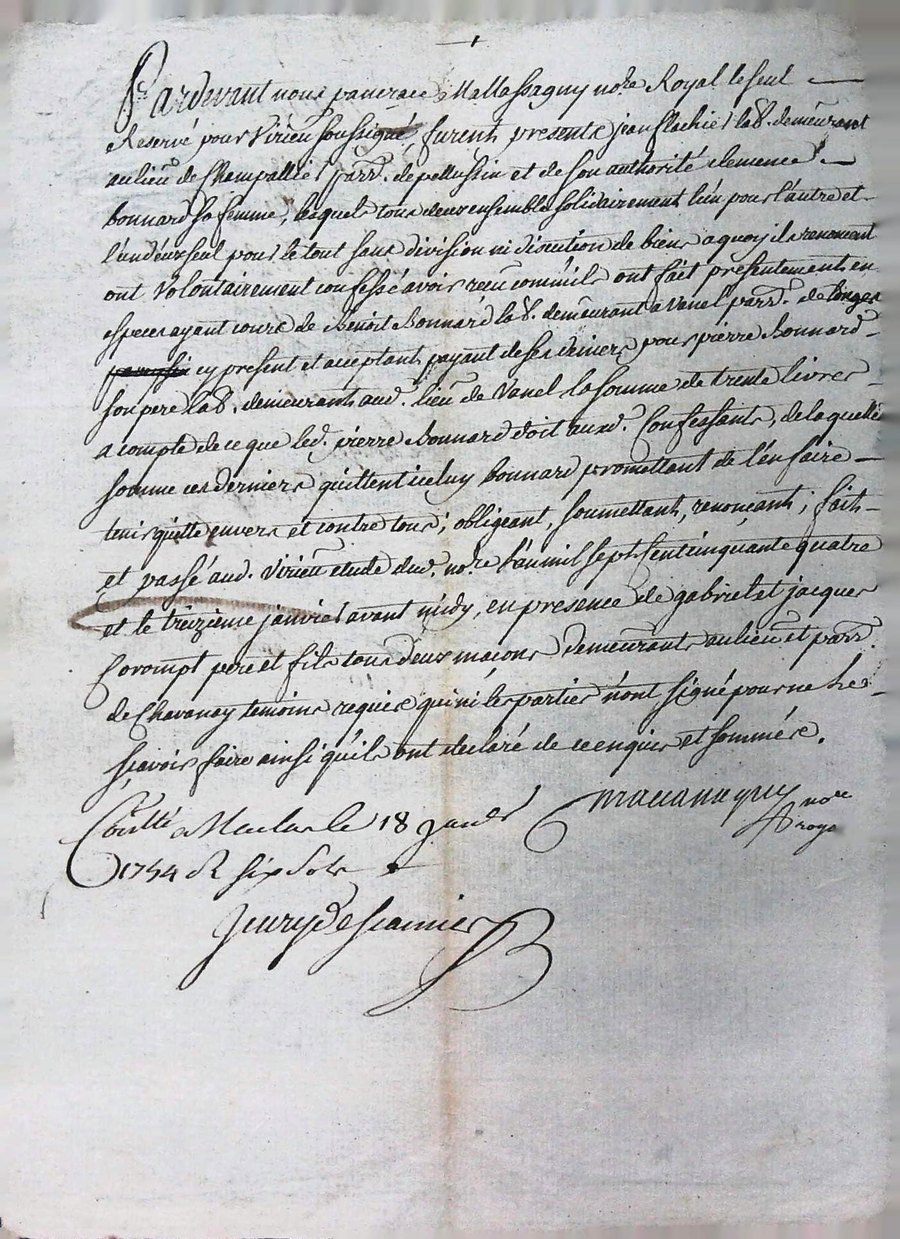 Pardevant nous pancrace Mallassagny no.re Royal le seul
Reservé pour Virieu soussigné, furent presents jean flachier lab. demeûrant
au lieu de Champallier parr. de pellussin et de son authorité clemence
bonnard sa femme, lesquels tous deux ensemble solidairement l'un pour l'autre et
l'un d'eux seul pour le tout sans division ni discution de biens a quoy ils renoncent
ont volontairement confessé avoir reçu comm'ils ont fait presentement en
especes ayant cours de Benoit Bonnard lab. demeûrant a Vanel parr. de longes
cy present et acceptant payant de ses deniers pour pierre Bonnard
son pere lab. demeurant aud. lieu de Vanel la somme de trente livres
a compte de ce que led. pierre Bonnard doit auxd. Confessants, de laquelle
somme ces derniers quittent iceluy bonnard promettant de l'en faire
tenir quitte envers et contre tous; obligeant, soumettant, renonçant; fait
et passé aud. Virieu etude dud. no.re l'an mil sept Cent cinquante quatre
et le treizieme janvier avant midy, en presence de gabriel et jacques
Corompt pere et fils tous deux maçons demeurants au lieu et parr.
de Chavanay temoins requis qui ni les parties n'ont signé pour ne le
sçavoir faire ainsi qu'ils ont declaré de ce enquis et sommés.
no.re
royal
Con.llé a Maclas le 18 Janer
1754 R six sols